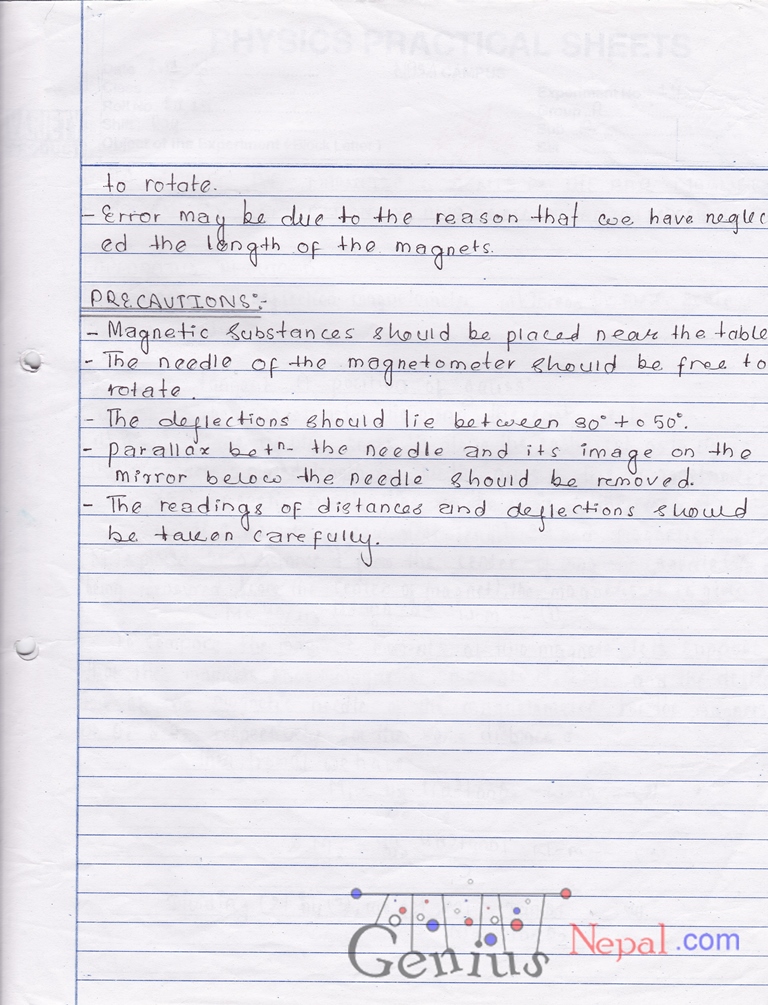 PHYSICS PRACTICAL SHEETS
to rotate.
- Error may be due to the reason that we have neglec
ed the length of the magnets.
PRECAUTIONS:-
- Magnetic substances should be placed near the table
- The needle of the magnetometer should be free to
rotate.
- The deflections should lie between 30° to 50°.
- parallax betn the needle and its image on the
mirror below the needle should be removed.
- The readings of distances and deflections should
be taken carefully.
Genius Nepal.com